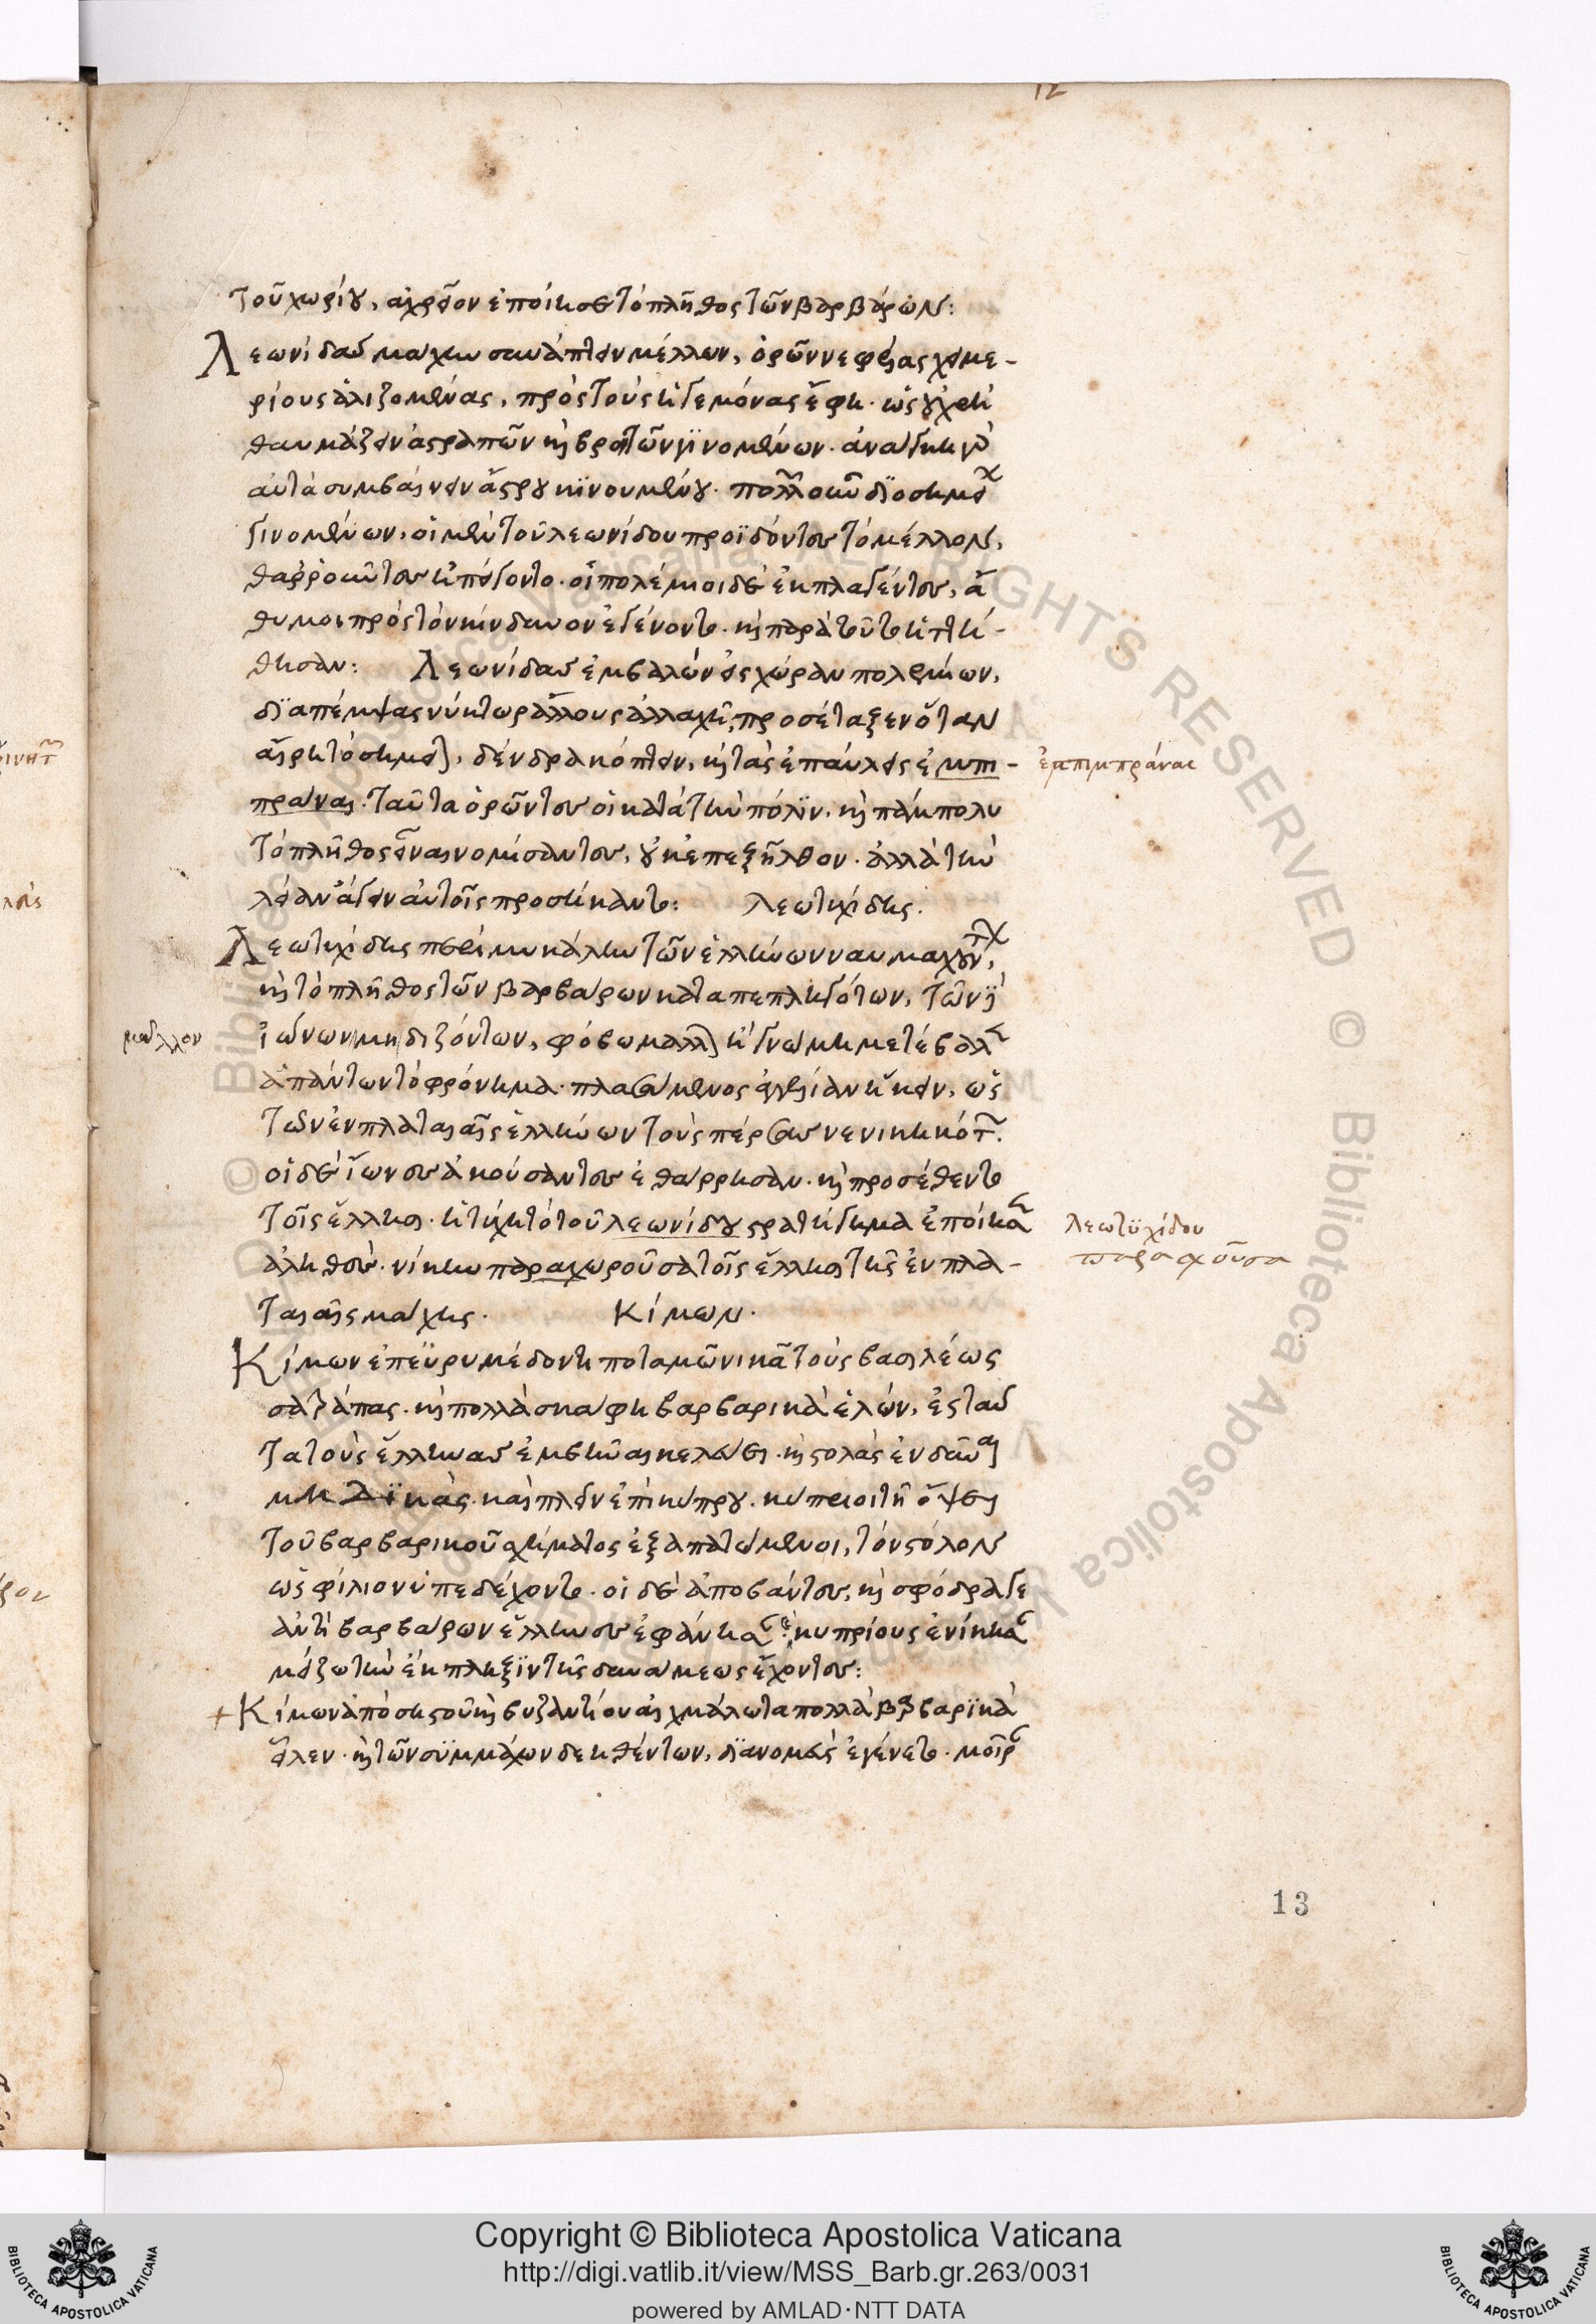 12
τοῦ χωρίου, ἀχρεῖον ἐποίησε τὸ πλῆθος τῶν βαρβάρων:
Λεωνίδας μάχην συνάπτειν μέλλων, ὁρῶν νεφέλας χειμε-
ρίους ἁλιζομένας, πρὸς τοὺς ἡγεμόνας ἔφη. ὡς οὐ χρὴ
θαυμάζειν ἀστραπῶν καὶ βροντῶν γϊνομένων. ἀνάγκη γὰρ
αὐτὰ συμβαίνειν ἄστρου κϊνουμένου. πολλῶν οὖν δϊοσημειῶν
γινομένων, οἱ μὲν τοῦ λεωνίδου προϊδόντες τὸ μέλλον,
θαρροῦντες ἠπείγοντο. οἱ πολέμιοι δὲ ἐκπλαγέντες, ἄ
θυμοι πρὸς τὸν κίνδυνον ἐγένοντο. καὶ παρὰ τοῦτο ἡττή-
θησαν: Λεωνίδας ἐμβαλὼν εἰς χώραν πολεμίων,
δϊαπέμψας νύκτωρ ἄλλους ἀλλαχῆ, προσέταξεν ὅταν
αἴρη τὸ σημεῖον, δένδρα κόπτειν, καὶ τὰς ἐπαύλεις ἐμπι-
πράναι. ταῦτα ὁρῶντες οἱ κατὰ τὴν πόλϊν, καὶ πάμπολυ
τὸ πλῆθος εἶναι νομίσαντες, οὐκ ἐπεξῆλθον. ἀλλὰ τὴν
λείαν ἄγειν αὐτοῖς προσήκαντο: λεωτυχίδης.
ἐμπιμπράναι
Λεωτυχίδης περὶ μυκάλην τῶν ἑλλήνων ναυμαχούντων,
καὶ τὸ πλῆθος τῶν βαρβάρων καταπεπληγότων, τῶν
ἰώνων μηδιζόντων, φόβω μᾶλλον ἢ γνώμη μετέβαλεν
ἁπάντων τὸ φρόνημα. πλασάμενος ἀγγελίαν ἥκειν, ὡς
τῶν ἐν πλαταιαῖς ἑλλήνων τοὺς πέρσας νενικηκότων.
οἱ δὲ ἴωνες ἀκούσαντες ἐθάρρησαν. καὶ προσέθεντο
τοῖς ἕλλησι. ἡ τύχη τὸ τοῦ λεωνίδου στρατήγημα ἐποίησεν
ἀληθὲς. νίκην παραχωροῦσα τοῖς ἕλλησι τῆς ἐν πλα-
ταιαῖς μάχης. Κίμων.
μᾶλλον
λεωτϋχίδου
Κίμων ἐπ' εὐρυμέδοντι ποταμῶ νικᾶ τοὺς βασιλέως
σατράπας. καὶ πολλὰ σκάφη βαρβαρικὰ ἑλών, ἐς ταῦ
τα τοὺς ἕλληνας ἐμβῆναι κελεύει. καὶ στολὰς ἐνδῦναι
μηδϊκὰς. καὶ πλεῖν ἐπὶ κύπρου. κύπριοι τῆ ὄψει
τοῦ βαρβαρικοῦ σχήματος ἐξαπατώμενοι, τὸν στόλον
ὡς φίλιον ὑπεδέχοντο. οἱ δὲ ἀποβάντες, καὶ σφόδρα γε
ἀντὶ βαρβάρων ἕλληνες ἐφάνησαν. καὶ κυπρίους ἐνίκησαν
μείζω τὴν ἔκπληξϊν τῆς δυνάμεως ἔχοντες:
+ Κίμων ἀπὸ σηστοῦ καὶ βυζαντίου αἰχμάλωτα πολλὰ βαρβαρϊκὰ
εἷλεν. καὶ τῶν συμμάχων δεηθέντων, δϊανομεὺς ἐγένετο. μοῖραν
13
Copyright © Biblioteca Apostolica Vaticana
http://digi.vatlib.it/view/MSS_Barb.gr.263/0031
powered by AMLAD·NTT DATA
BIBLIOTECA APOSTOLICA VATICANA
BIBLIOTECA APOSTOLICA VATICANA